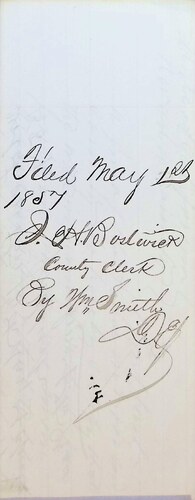 Filed May 1st
1857
J. H. Bostwick
County Clerk
By Wm Smith
Dy